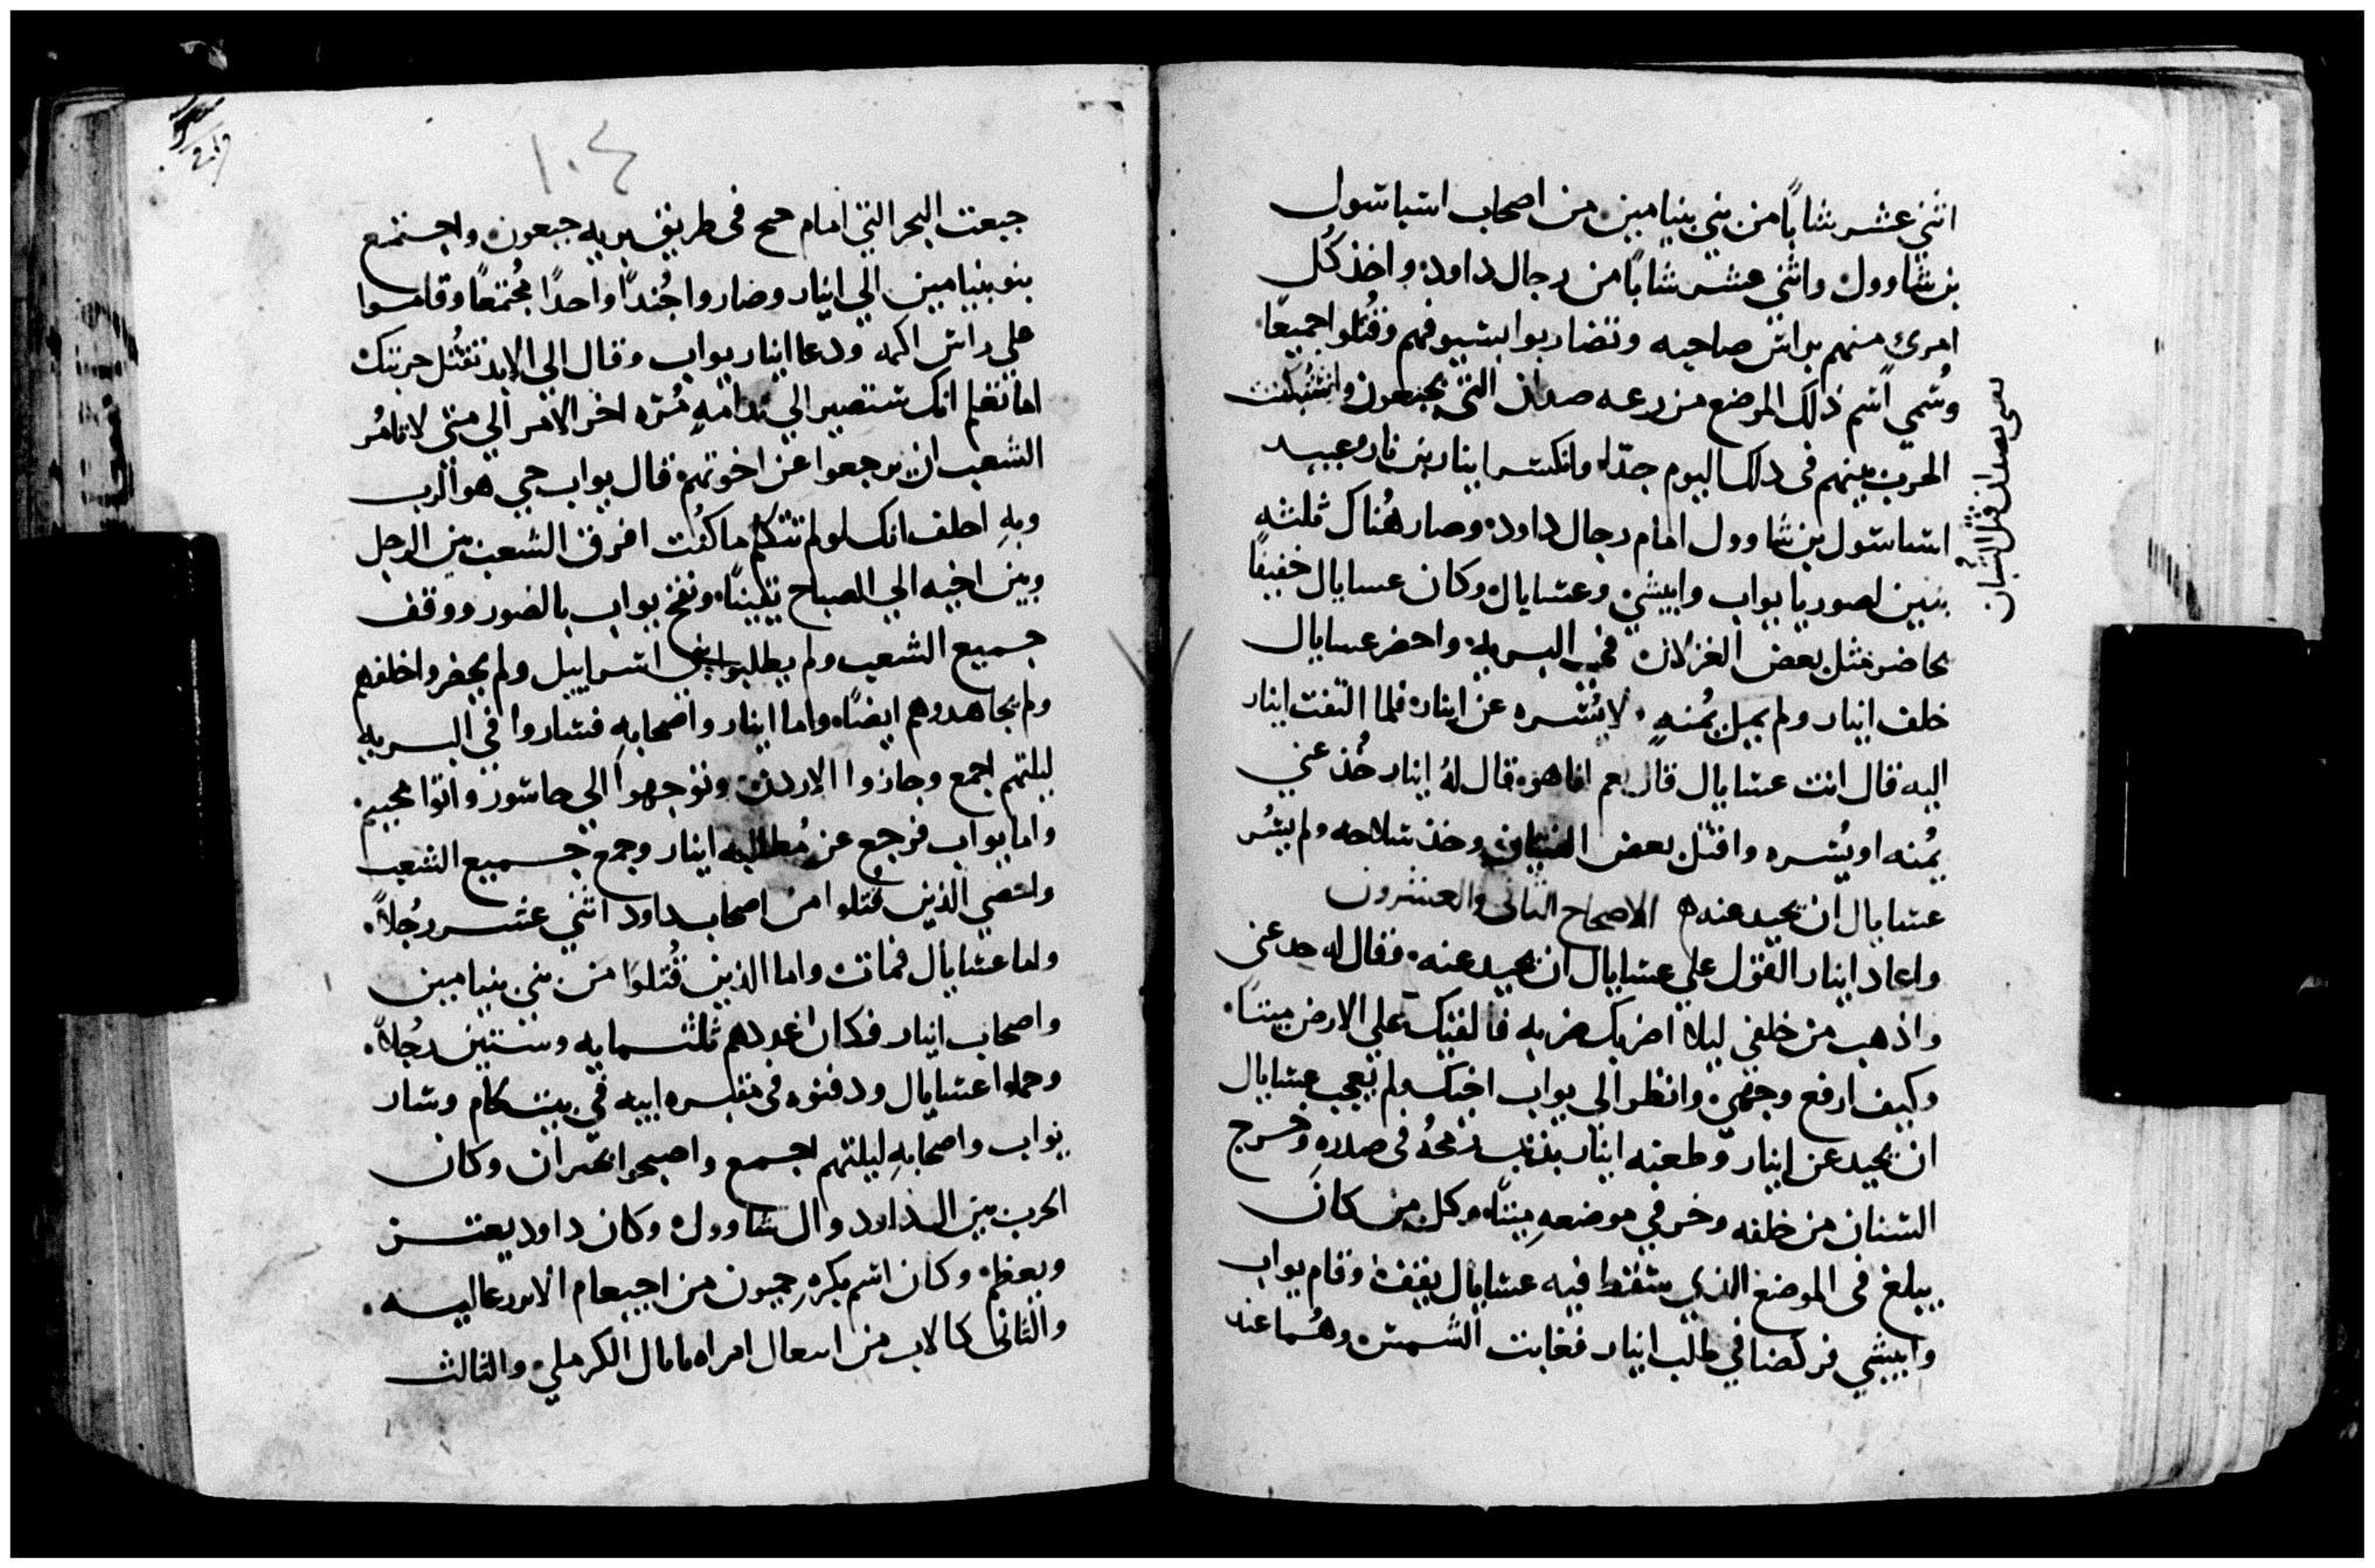 اثني عشر شابًا من بني بنيامين من اصحاب اسباسول
بن شاوول واثني عشر شابًا من رجال داود واخذ كُل
امرئ منهم براس صاحبه وتضاربوا بسيوفهم وقُتلوا جميعًا
وسُمي اسم ذلك الموضع مزرعه صدان التي بجبعون واشتُبكت
الحرب بينهم في دلك اليوم جدّا وانكسر ابنار بن نار وعبيد
اسباسول بن شاوول امام رجال داود وصار هُناك ثلثه
بنين لصوريا يواب وابيشي وعسايال وكان عسايال خفيفًا
يحاضر مثل بعض الغزلان في البريه واحضر عسايال
خلف ابنار ولم يميل يُمنهٍ لا يُسره عن ابنار فلما التفت ابنار
اليه قال انت عسايال قال نعم انا هو قال لهُ ابنار خُذ عني
يُمنه او يُسره واقتل بعض الفتيان وخذ سلاحه ولم يسُر
عسايال ان يحيد عنه الاصحاح الثاني والعشرون
واعاد ابنار القول علي عسايال ان يحيد عنه فقال له حد عني
واذهب من خلفي ليلا اضربك ضربه فالقيك علي الارض ميتًا
وكيف ارفع وجهي وانظر الي يواب اخيك ولم يعجب عسايال
ان يحيد عن ابنار وطعنه ابنار بذنب رمحهُ في صدرهِ وخرج
السنان من خلفه وخر في موضعهِ ميتًا وكل من كان
يبلغ في الموضع الذي سقط فيه عسايال يقف وقام يواب
وابيشي فركضا في طلب ابنار فغابت الشمس وهُما عند
١٠٤
جبعت البحر التي امام جيح في طريق بريه جبعون واجتمع
بنو بنيامين الي ابنار وصاروا جُندًا واحدًا مُجتمعًا وقاموا
علي راس اكمه ودعا ابنار يواب وقال الي الابد تقتُل حربتك
اما تعلم انك ستصير الي ندامهٍ مُره اخر الامر الي متي لا تامُر
الشعب ان يرجعوا عن اخوتهم قال يواب حي هو الرب
وبهِ احلف انك لو لم تتكلم ما كُنت افرق الشعب بين الرجل
وبين اخيه الي الصباح يقينًا ونفخ يواب بالصور ووقف
جميع الشعب ولم يطلبوا بني اسراييل ولم يحضروا خلفهم
ولم يجاهدوهم ايضًا واما ابنار واصحابهِ فساروا في البريه
ليلتهم اجمع وجازوا الاردن وتوجهوا الي جاسور واتوا محييم
واما يواب فرجع عن مُطالبه ابنار وجمع جميع الشعب
واحصي الذين قُتلوا من اصحاب داود اثني عشر رجُلاً
واما عسايال فمات واما الذين قُتلوا من بني بنيامين
واصحاب ابنار فكان عددهم ثلثمايه وستين رجُلاً
وحملوا عسايال ودفنوه في مقبره ابيه في بيت كام وسار
يواب واصحابهِ ليلتهم اجمع واصبحوا بحبران وكان
الحرب بين ال داود وال شاوول وكان داود يعتز
ويعظم وكان اسم بكرهِ حميون من اجيعام الابزرعاليه
والثاني كالاب من ابيعال امراه نابال الكرملي والثالث